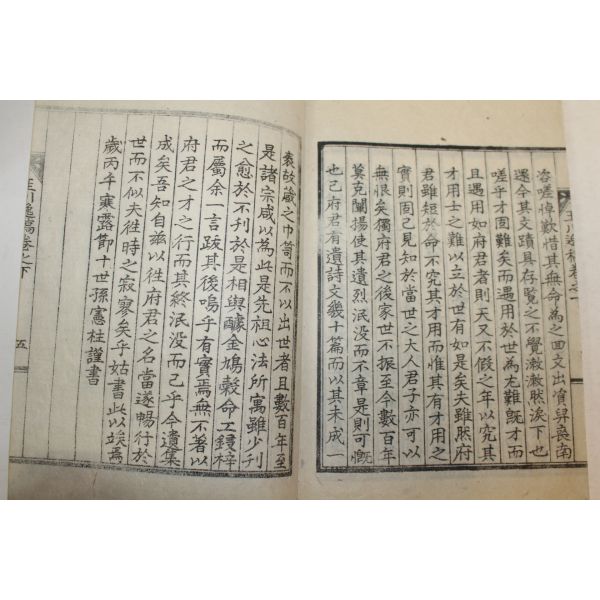 咨嗟悼歎惜其無命爲之四文出賓舁喪南
還今其文蹟具存覽之不覺潸潸然淚下也
嗟乎才固難矣而遇用於世爲尤難旣才而
且遇用如府君者則天又不假之年以究其
才用士之難以立於世有如是矣夫雖然府
君雖短於命不究其才用而惟其有才用之
實則固已見知於當世之大人君子亦可以
無恨矣獨府君之後家世不振至今數百年
莫克闡揚使其遺烈泯没而不章是則可慨
也已府君有遺詩文幾十篇而以其未成一
袠故藏之巾笥而不以出世者且數百年至
是諸宗咸以爲此是先祖心法所寓雖少刋
之愈於不刋於是相與醵金鳩穀命工鋟梓
而屬余一言跋其後嗚乎有實焉無不著以
府君之才之行而其終泯没而已乎今遺集
成矣吾知自兹以徃府君之名當遂暢行於
世而不似夫徃時之寂寥矣乎姑書此以竢焉
歲丙午寒露節十世孫憲柱謹書
玉川逸稿卷之下
五